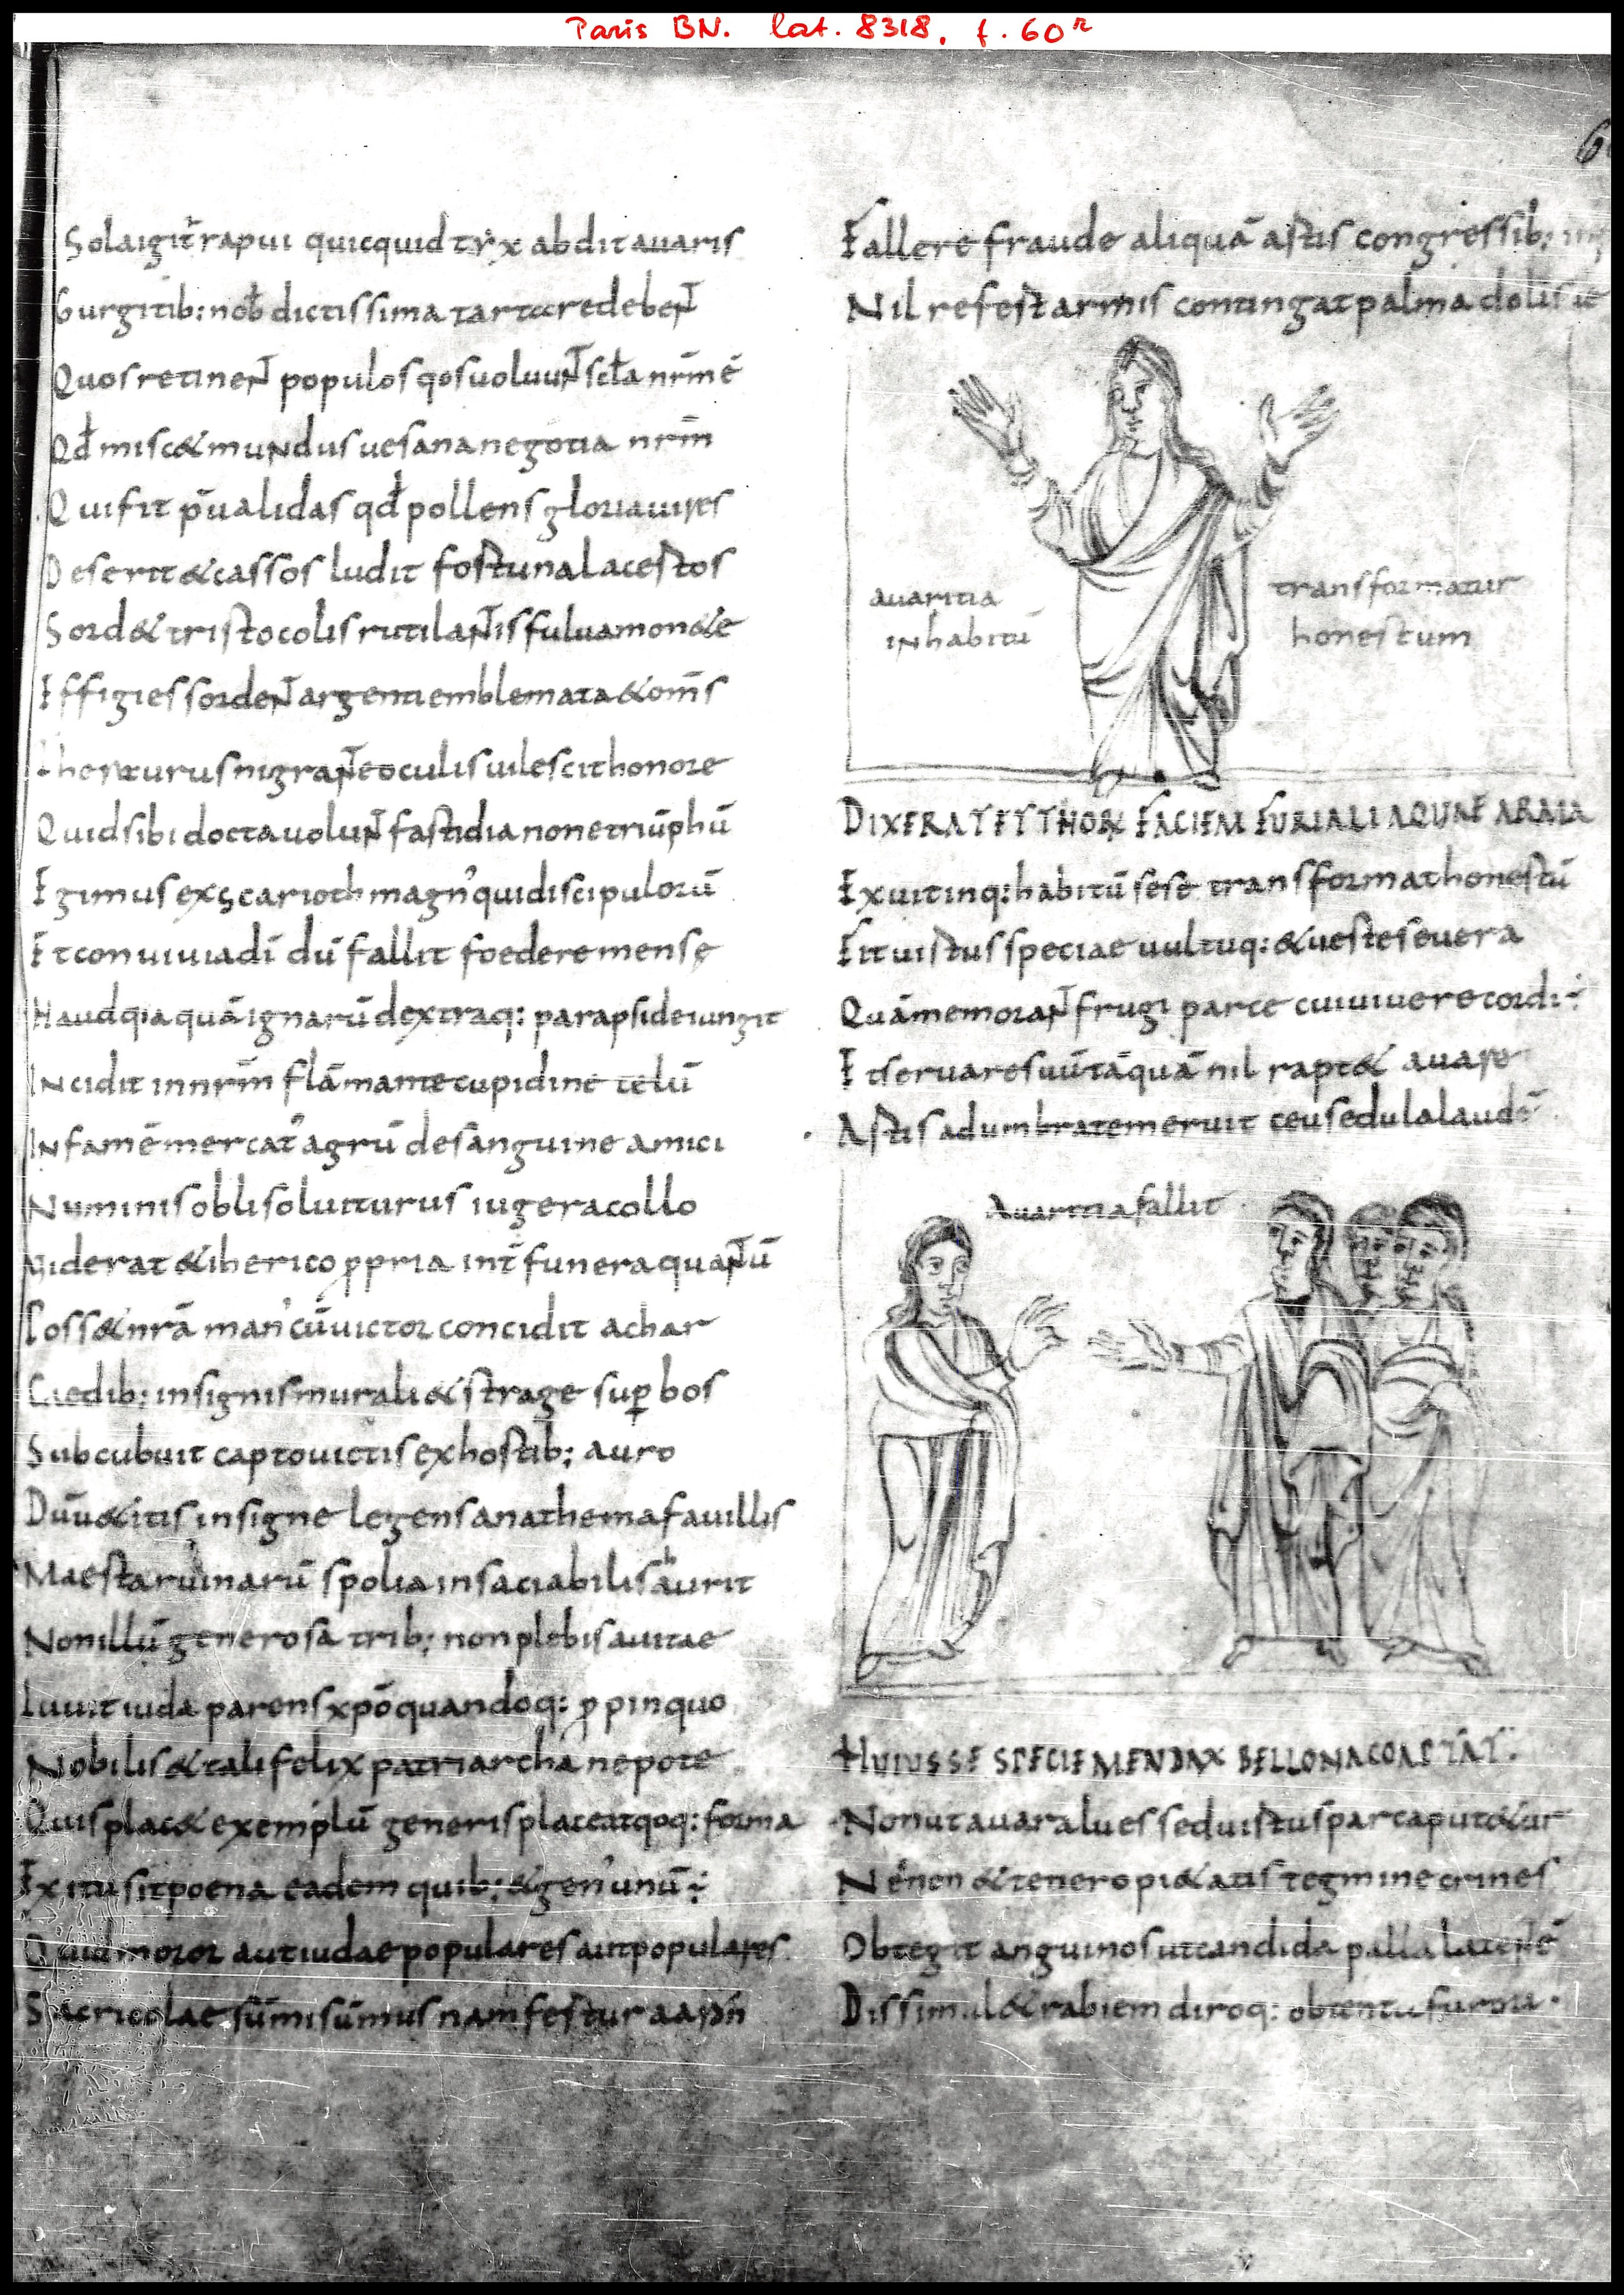 Paris BN. lat. 8318, f. 60r
Sola igit̄ rapui quicquid abdit auaris
Gurgitib: nob̄ dictissima tartara redebeNT̄
Quos retineNT̄ populos qos uoluuNT̄ scl̄a nrm̄ ē
Qd̄ misc& muNdus uesana negotia nrm̄
Quifit p̄ualidas qd̄ pollens gloria uires
Deserit & cassos ludit fortuna lacertos
Sord& tristocolis rutilaNT̄is fulua mon&e
Effigies sordeNT̄ argenti emblemata & om̄s
Thensurus nigraNT̄e oculis uilescit honore
Quid sibi docta uoluNT̄ fastidia non e triūphū
Egimus ex scarioth magn' qui discipulorū
Et conuiuia dī dū fallit foedere mense
Haud qia quā ignarū dextraq: parapside iungit
INcidit in nrm̄ flāmante cupidine telū
INfamē mercat' agrū de sanguine amici
Numinis obliso luiturus iugera collo
Uiderat & iherico ppria int̄ funera quaNT̄ū
Poss& nrā man' cū uictor concidit achar
Caedib; insignis murali & strage supbos
Subcubuit capto uictis ex hostib; auro
Dū u&itis insigne legens anathema fauillis
Maesta ruinarū spolia insaciabilis haurit
Non illū generosa trib; non plebis auitae
Iuuit iuda parens xpō quandoq: ppinquo
Nobilis & tali felix patriarcha nepote
Quis plac& exemplū generis placeat qoq: forma
Exitu sit poena eadem quib; & gen' unū÷
Quid moror aut iudae populares aut populares
Sacricolae sūmi sūmus nam fertur
Fallere fraude aliquā astis congressib;
Nil refert armis contingat palma dolis
auaritia transformatur
iNhabitū honestum
DIXERAT ET FACIEM FURIALIAQUAE
Exuit inq: habitū sese transformat honestū
Fit uirtus speciae uultuq: & ueste seuera
Quā memoraNT̄ frugi parce cui uiuere cordi÷
Et seruare suū tāquā nil rapt& auare
Astis adumbrate meruit ceu sedula laudē
Auaritia fallit
HUIUS SE SPECIE MENDAX BELLONA COAPTAT.
Non ut auara lues sed uirtus parca put&ur
Nenon & tenero pi&atis tegmine crines
Obtegit anguinos ut candida palla latentē
Dissimul& rabiem diroq: obtentu furori.